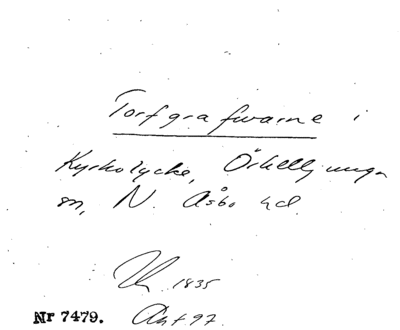 Torfgrafwarne i
Kyrkolycke, Örkelljunga
sn, N. Åsbo hd.
1835
Nr 7479. Akt 97.